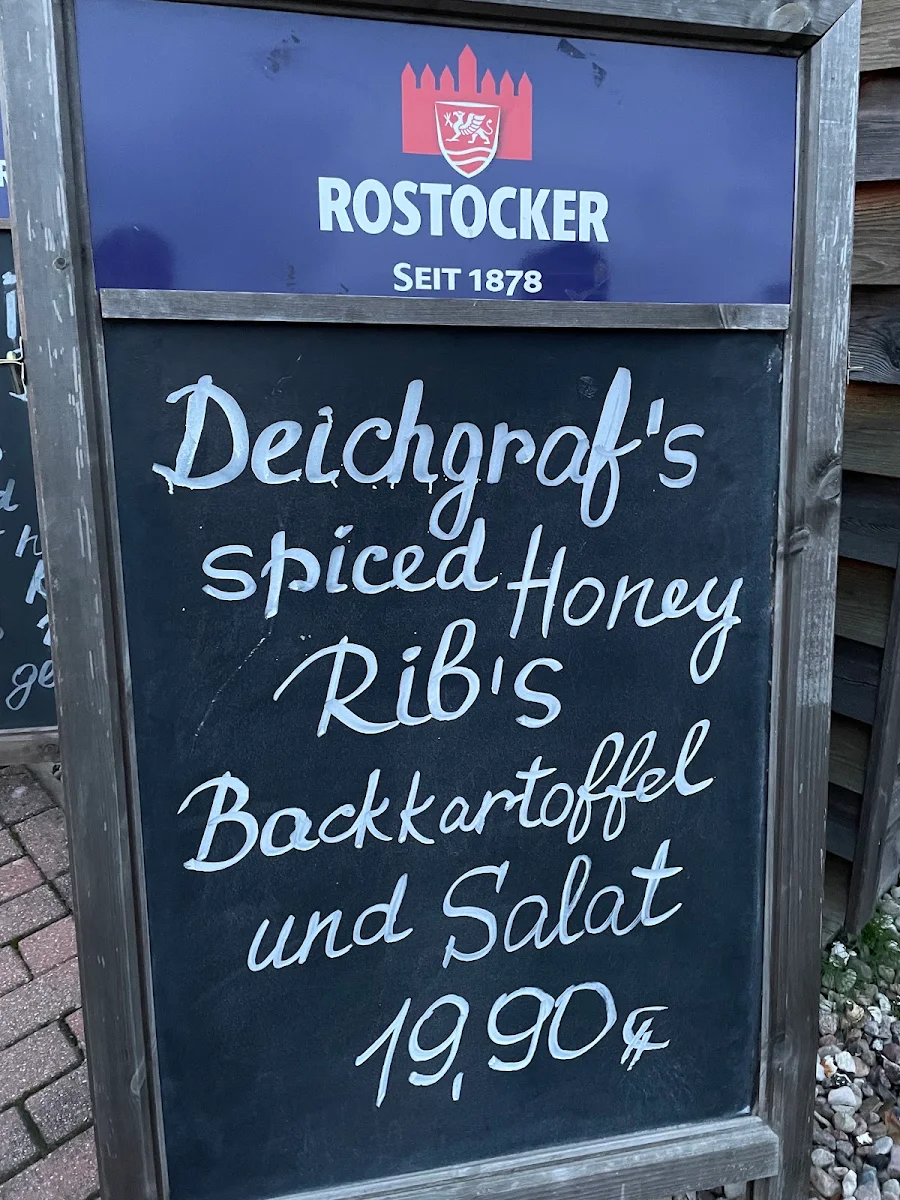 ROSTOCKER
SEIT 1878
Deichgraf's
spiced Honey
Rib's
Backkartoffel
und Salat
19,90€